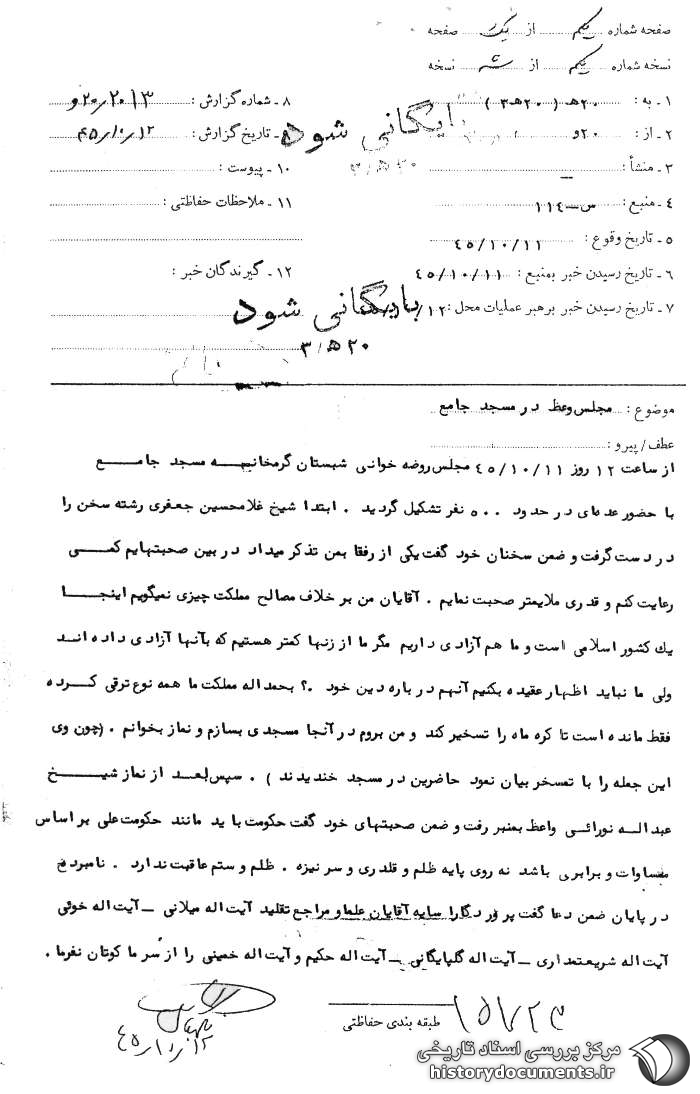 صفحه شماره یکم از یک صفحه
نسخه شماره یکم از سه نسخه
۱ ـ به : ۲۰هـ ( ۲۰هـ۳ )
۲ ـ از : ۲۰و
۳ ـ منشأ : ـ
۴ ـ منبع : س ـ ۱۱۴
۵ ـ تاریخ وقوع : ۴۵/۱۰/۱۱
۶ ـ تاریخ رسیدن خبر بمنبع : ۴۵/۱۰/۱۱
۷ ـ تاریخ رسیدن خبر برهبر عملیات محل : ۱۲
۸ ـ شماره گزارش : ۲۰۱۳/۲۰و
۹ ـ تاریخ گزارش : ۴۵/۱۰/۱۲
۱۰ ـ پیوست :
۱۱ ـ ملاحظات حفاظتی :
۱۲ ـ گیرندگان خبر :
بایگانی شود
بایگانی شود
۲۰هـ۳
موضوع : مجلس وعظ در مسجد جامع
عطف/ پیرو :
از ساعت ۱۲ روز ۴۵/۱۰/۱۱ مجلس روضه خوانی شبستان گرمخانه مسجد جامع
با حضور عده‌ای در حدود ۵۰۰ نفر تشکیل گردید . ابتدا شیخ غلامحسین جعفری رشته سخن را
در دست گرفت و ضمن سخنان خود گفت یکی از رفقا بمن تذکر میداد در بین صحبتهایم کمی
رعایت کنم و قدری ملایمتر صحبت نمایم . آقایان من بر خلاف مصالح مملکت چیزی نمیگویم اینجا
یك کشور اسلامی است و ما هم آزادی داریم مگر ما از زنها کمتر هستیم که بآنها آزادی داده اند
ولی ما نباید اظهار عقیده بکنیم آنهم در باره دین خود .؟ بحمداله مملکت ما همه نوع ترقی کرده
فقط مانده است تا کره ماه را تسخیر کند و من بروم در آنجا مسجدی بسازم و نماز بخوانم . (چون وی
این جمله را با تمسخر بیان نمود حاضرین در مسجد خندیدند ) . سپس بعد از نماز شیخ
عبداله نورائی واعظ بمنبر رفت و ضمن صحبتهای خود گفت حکومت باید مانند حکومت علی بر اساس
مساوات و برابری باشد نه روی پایه ظلم و قلدری و سر نیزه . ظلم و ستم عاقبت ندارد . نامبرده
در پایان ضمن دعا گفت پروردگارا سایه آقایان علما و مراجع تقلید آیت اله میلانی ـ آیت اله خوئی
آیت اله شریعتمداری ـ آیت اله گلپایگانی ـ آیت اله حکیم و آیت اله خمینی را از سر ما کوتان نفرما .
طبقه بندی حفاظتی
۴۵/۱۰/۱۲
مرکز بررسی اسناد تاریخی
historydocuments.ir